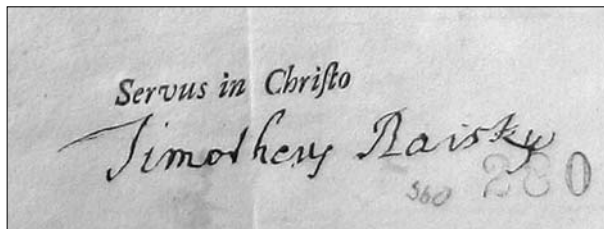 Servus in Chriſto
Timotheus Raisky
560 280